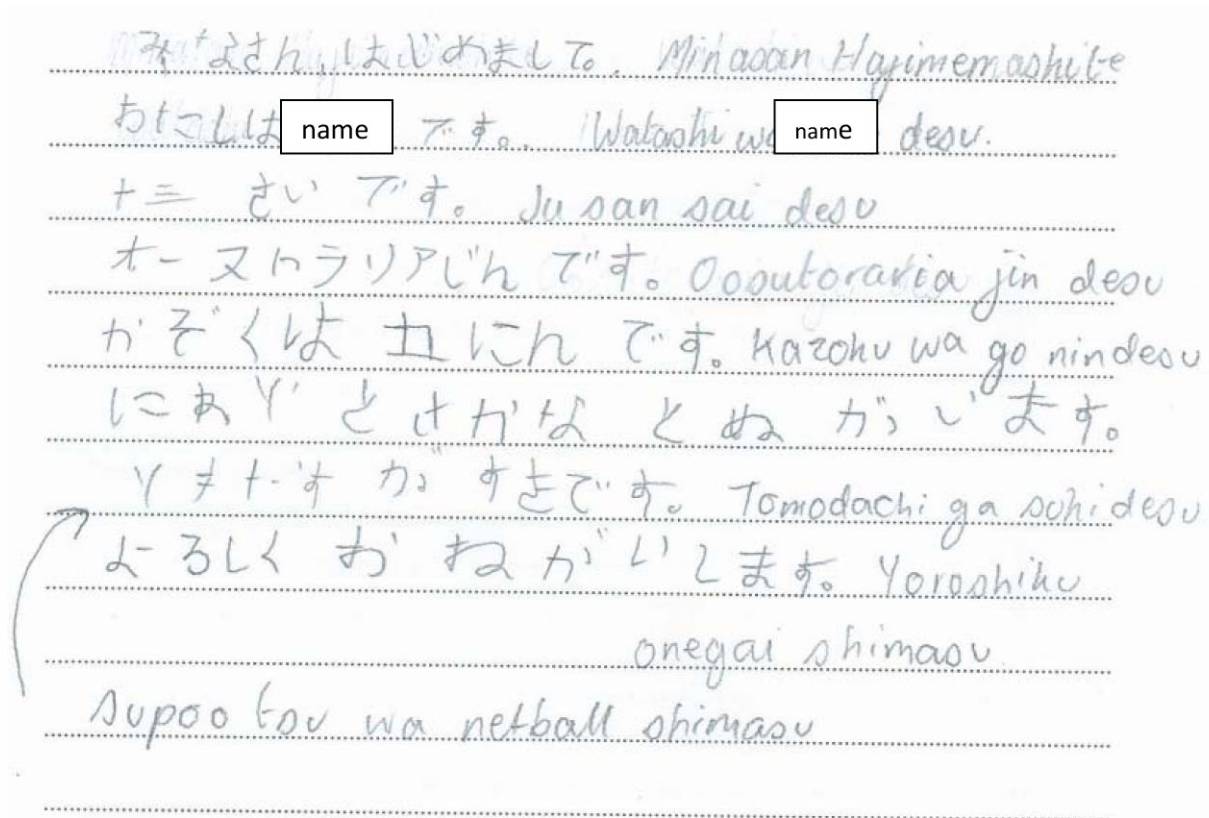 みなさん、はじめまして。. Minasan Hajimemashite
わたしは name です。. Watashi wa name desu.
十三 さい です。 Ju san sai desu
オーストラリアじん です。 Oosutoraria jin desu
かぞくは 五にん です。 Kazoku wa go nin desu
とさかな と が います。
が すきです。 Tomodachi ga suki desu
よろしく おねがいします。 Yoroshiku
onegai shimasu
supootsu wa netball shimasu